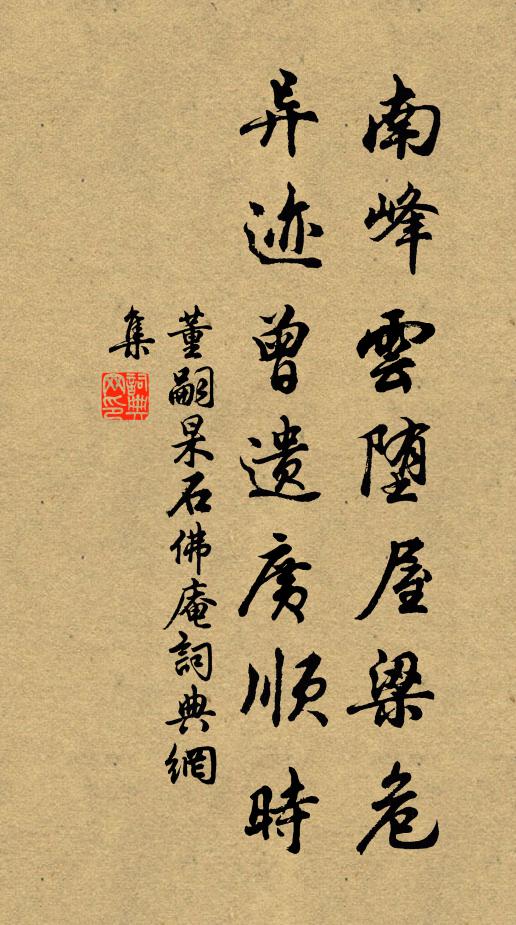 南峰雲堕屋梁危
异迹曾遗廣順時
董嗣杲石佛庵詞典網
集
詞典網印